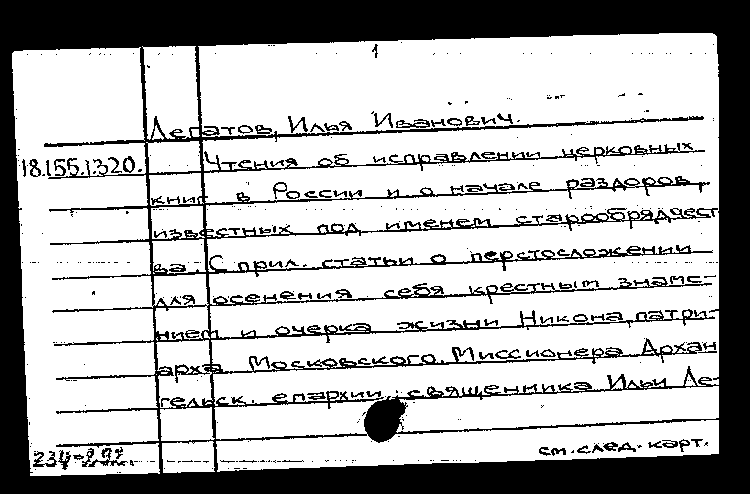 1
Легатов, Илья Иванович.
18.155.1.320. Чтения об исправлении церковных
книг в России и о начале раздоров,
известных под именем старообрядчест
ва. С прил. статьи о перстосложении
для осенения себя крестным знаме-
нием и очерка жизни Никона, патри-
арха Московского. Миссионера Архан
гельск. епархии, священника Ильи Ле-
234-292. см. след. карт.